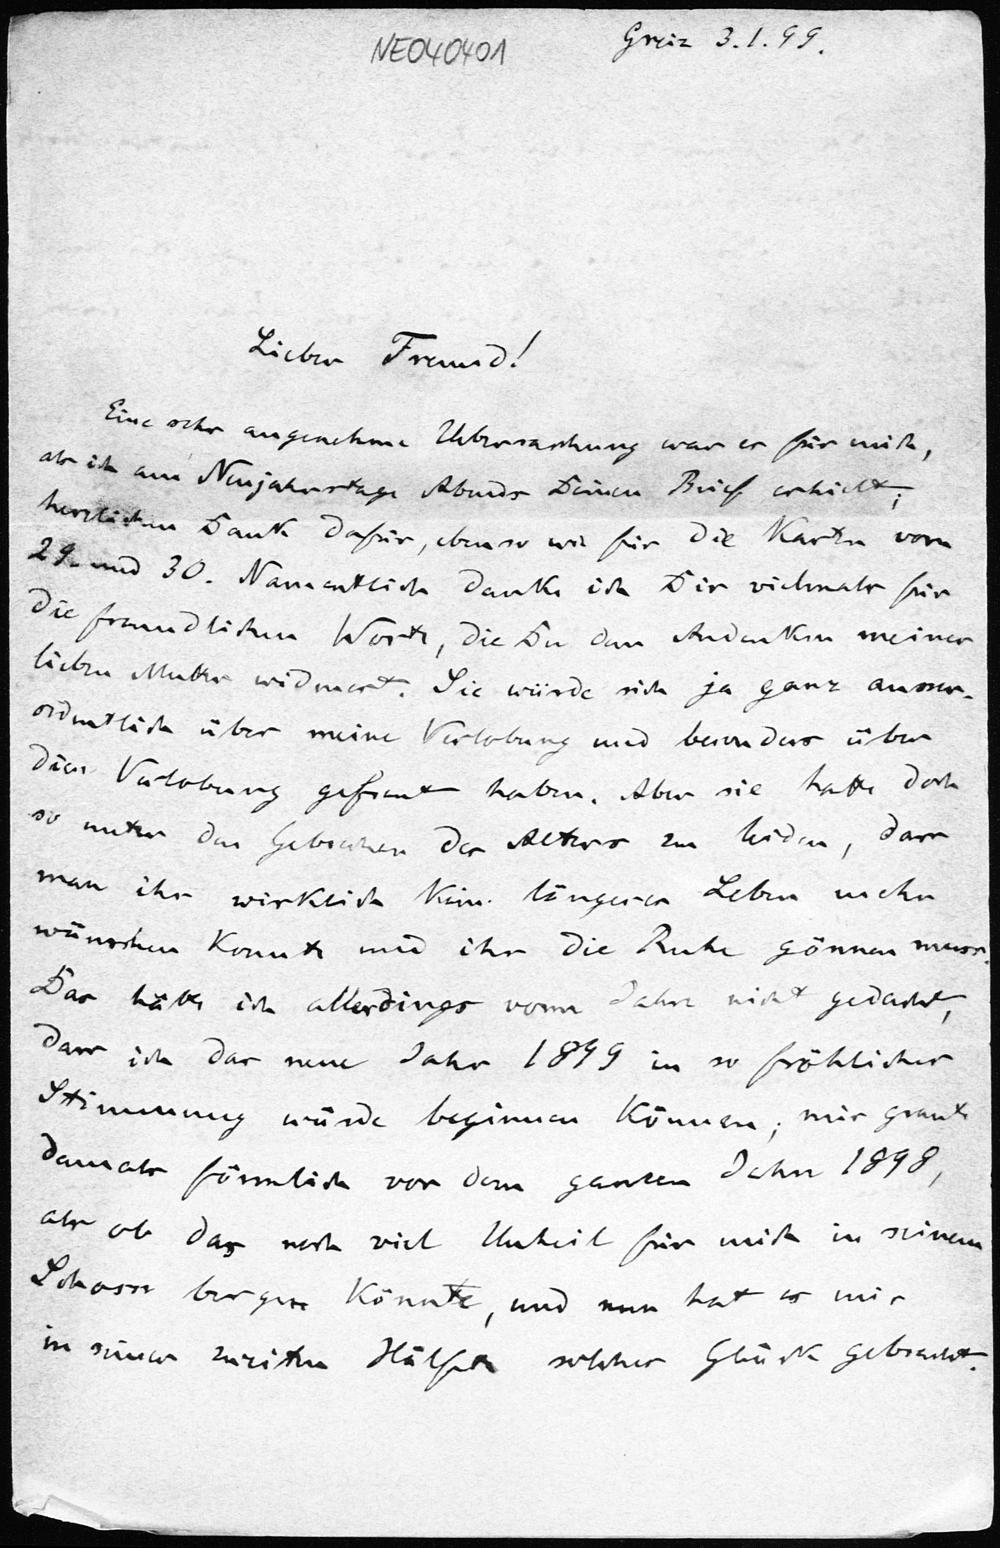 NE040401
Greiz 3.1.99.
Lieber Freund!
Eine sehr angenehme Ueberraschung war es für mich,
als ich am Neujahrstage Abends Deinen Brief erhielt;
herzlichen Dank dafür, ebenso wie für die Karten vom
29. und 30. Namentlich danke ich Dir vielmals für
die freundlichen Worte, die Du dem Andenken meiner
lieben Mutter widmest. Sie würde sich ja ganz ausser-
ordentlich über meine Verlobung und besonders über
diese Verlobung gefreut haben. Aber sie hatte doch
so unter den Gebrechen des Alters zu leiden, dass
man ihr wirklich kein längeres Leben mehr
wünschen konnte und ihr die Ruhe gönnen muss.
Das hätte ich allerdings vorm Jahre nicht gedacht,
dass ich das neue Jahr 1899 in so fröhlicher
Stimmung würde beginnen können; mir graute
damals förmlich vor dem ganzen Jahre 1898,
als ob das noch viel Unheil für mich in seinem
Schosse bergen könnte, und nun hat es mir
in seiner zweiten Hälfte solches Glück gebracht.